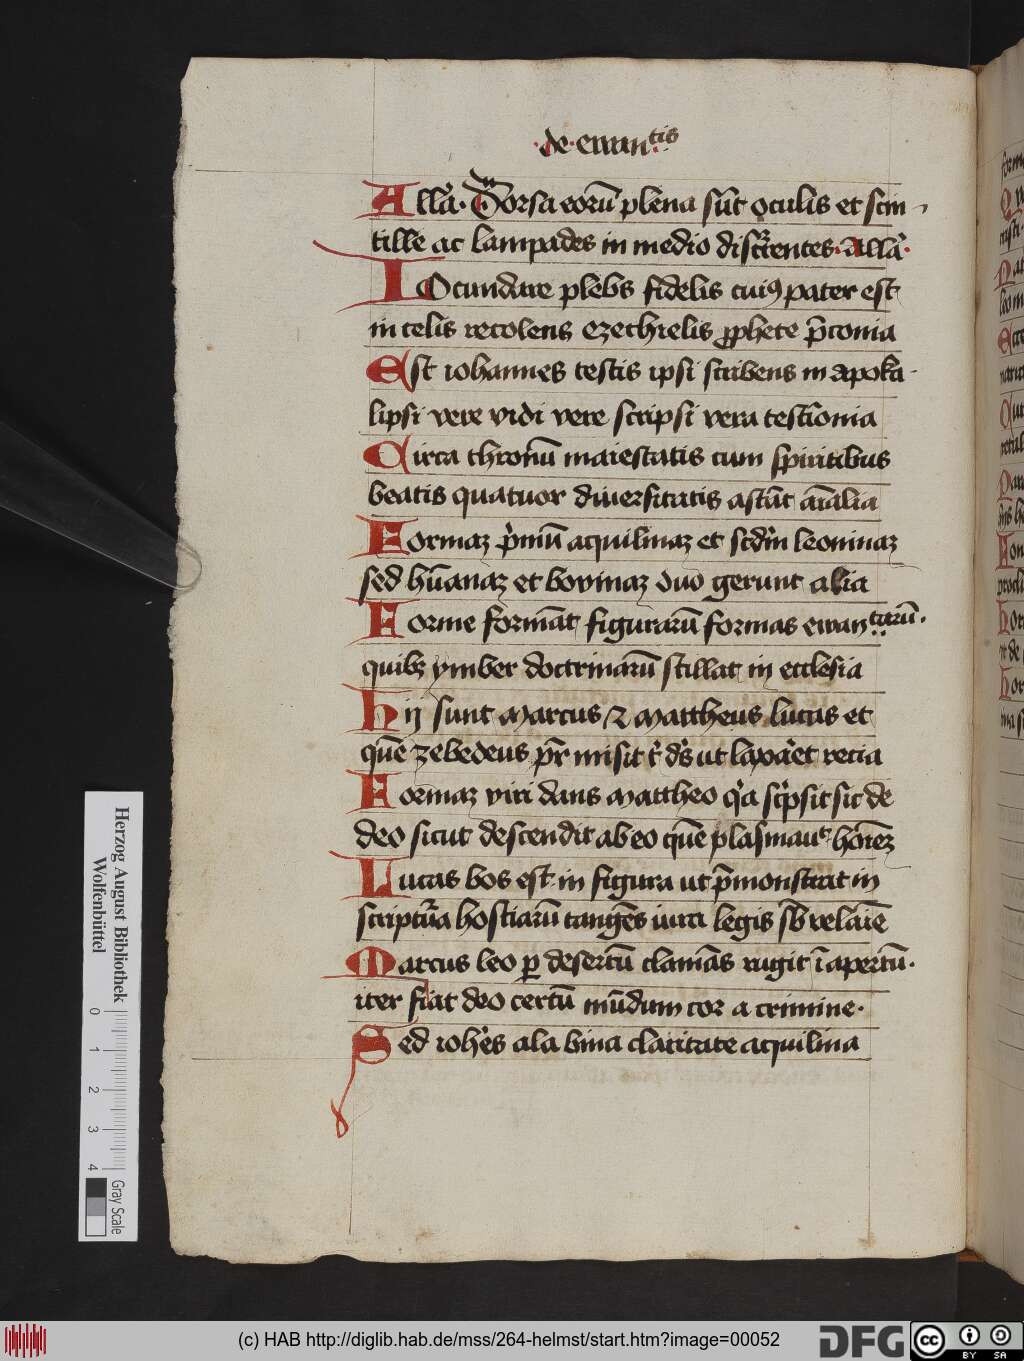 de ewan tis
Allā. V̄ Dorsa eorū plena sūt oculis et scin
tille ac lampades in medio discūrentes. Allā.
Iocundare plebs fidelis cuiꝯ pater est
in celis recolens ezechielis ꝓphete p̄conia
Est iohannes testis ipsi scribens in apoka
lipsi vere vidi vere scripsi vera testīonia
Circa thronū maiestatis cum spiritibus
beatis quatuor diuersitatis astāt aīalia
Formaꝫ p̄mū aquilinaꝫ et scd̄m leoninaꝫ
sed hūanaꝫ et bovinaꝫ duo gerunt alia
Forme formāt figurarū formas ewan tarū.
quibꝫ ymber doctrinarū stillat in ecclesia
Hij sunt Marcus ⁊ Mattheus lucas et
quē zebedeus pr̄ misit t̄ dn̄s ut laxaret recia
Formaꝫ viri dans Mattheo qꝛ scͥpsit sic de
deo sicut descendit ab eo quē plasmauit hoīeꝫ
Lucas bos est in figura ut p̄monstrat in
scriptūra hostiarū tangēs iura legis sb̄ velamē
Marcus leo ꝑ desertū clamās rugit ī apertū.
iter fiāt deo certū mūdum cor a crimine.
Sed ioh̄es ala bina claritate aquilina
Herzog August Bibliothek
Wolfenbüttel
0 1 2 3 4
Gray Scale
(c) HAB http://diglib.hab.de/mss/264-helmst/start.htm?image=00052
DFG
cc BY SA